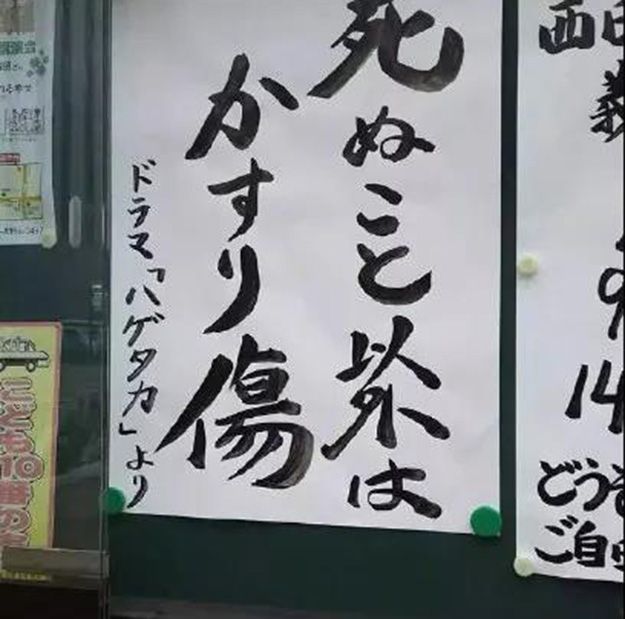 死ぬこと以外は
かすり傷
ドラマ「ハゲタカ」より
西
義
9
14
どうぞ
ご自由
こども110番の